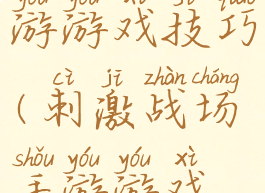 游游戏技巧
cì jī zhàn chǎng
(刺激战场
shǒu yóu yóu xì
手游游戏